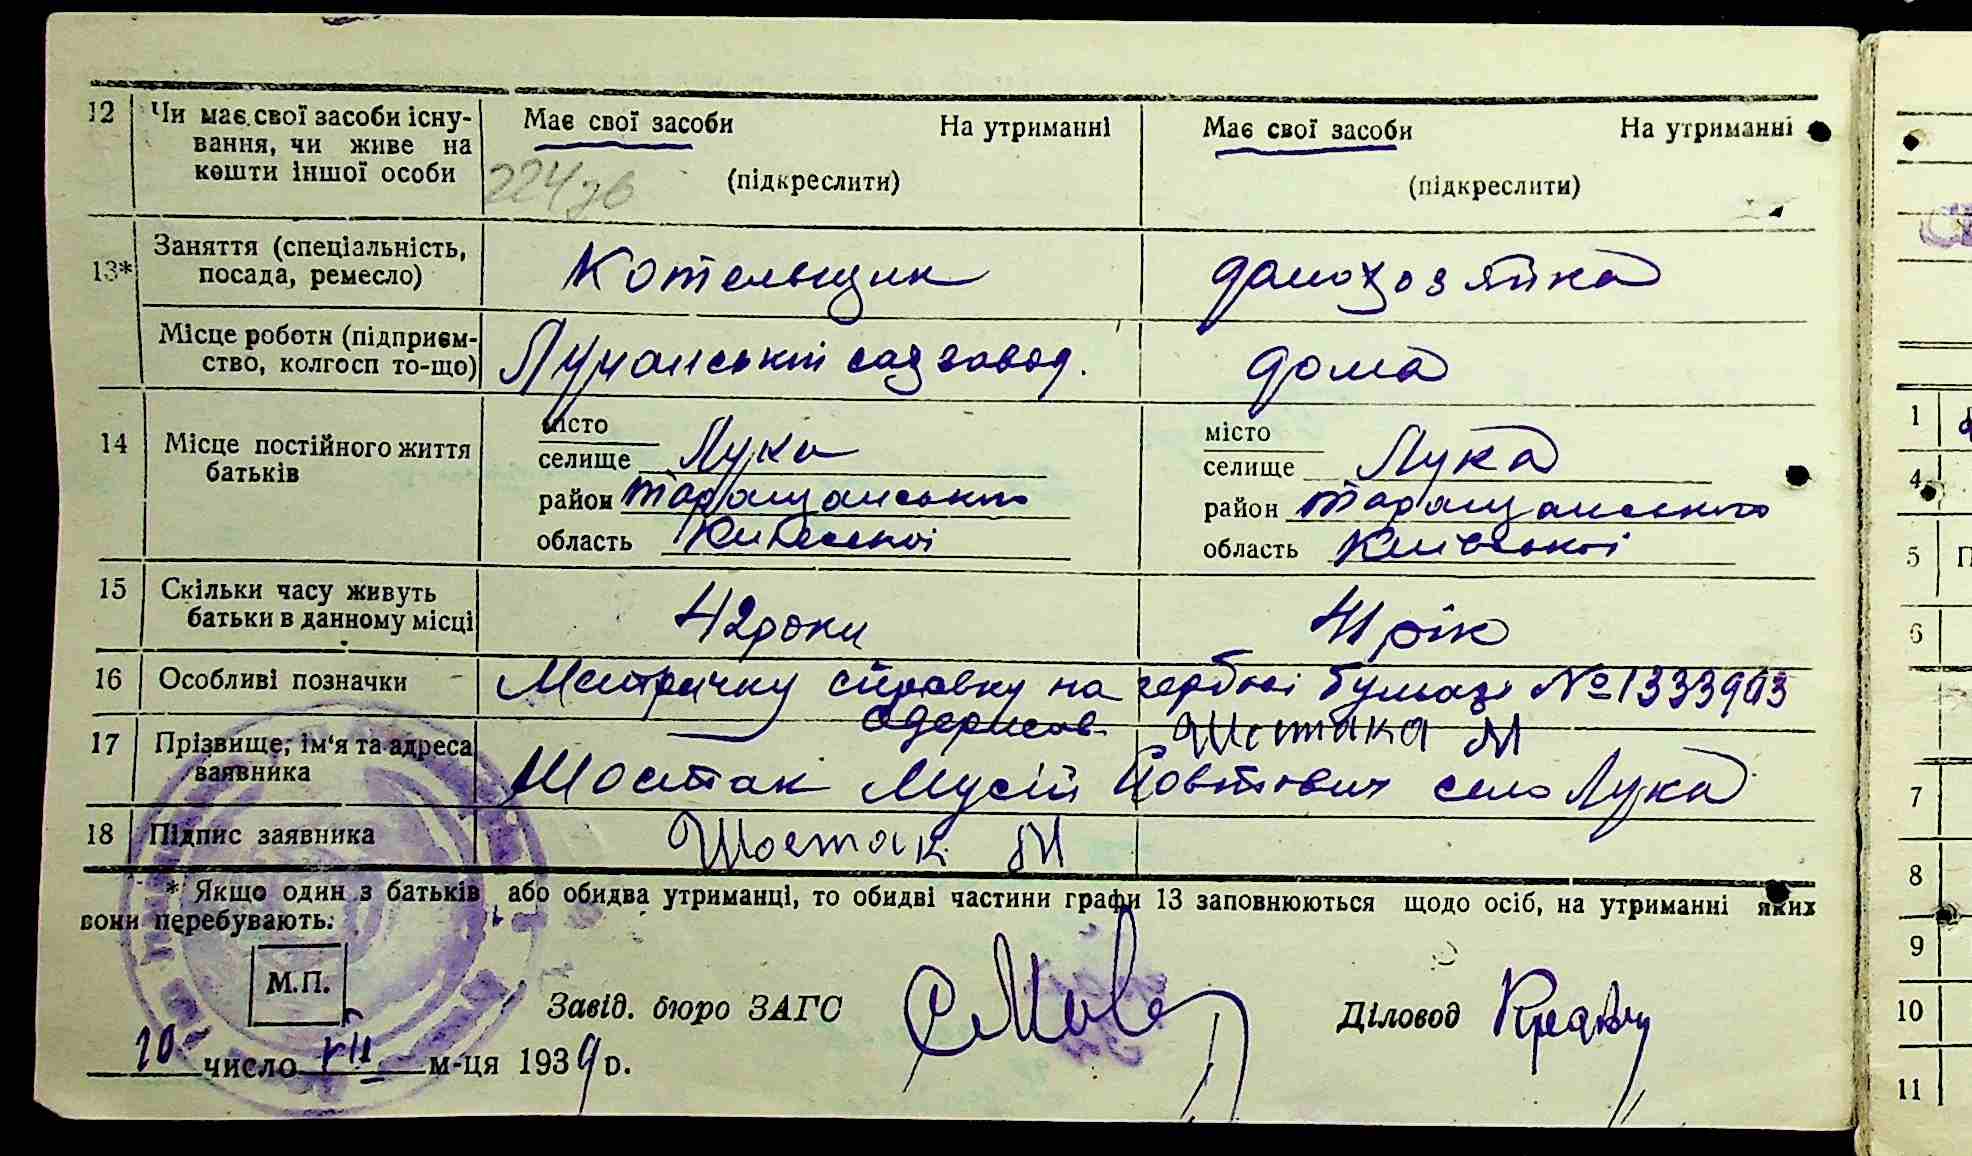 12 Чи має свої засоби існу- Має свої засоби На утриманні Має свої засоби На утриманні
вання, чи живе на
кошти іншої особи (підкреслити) (підкреслити)
224
13* Заняття (спеціальність, посада, ремесло) Котельщик домохозяйка
Місце роботи (підприєм-
ство, колгосп то-що) завод. дома
14 Місце постійного життя батьків
місто місто
селище Лука селище Лука
район Таращанського район Таращанського
область Київської область Київської
15 Скільки часу живуть
батьки в данному місці 42 роки 41 рік
16 Особливі позначки Метричну справку на гербові бумазі №1333903
одержав Шостака М
17 Прізвище, ім'я та адреса
заявника Шостак Мусій село Лука
18 Підпис заявника Шостак М
* Якщо один з батьків або обидва утриманці, то обидві частини графи 13 заповнюються щодо осіб, на утриманні яких
вони перебувають.
М.П.
Завід. бюро ЗАГС Діловод
20 число VII м-ця 1939 р.
1
4
5 П
6
7
8
9
10
11